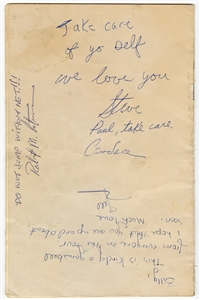 Take care
of yo Self
we love you
Steve
Paul, take care.
Candice
DO NOT JUMP WITHOUT NET!!!
Billy,
This is kinda a
from everyone on the tour
I hope that you are up and about
soon. Much love